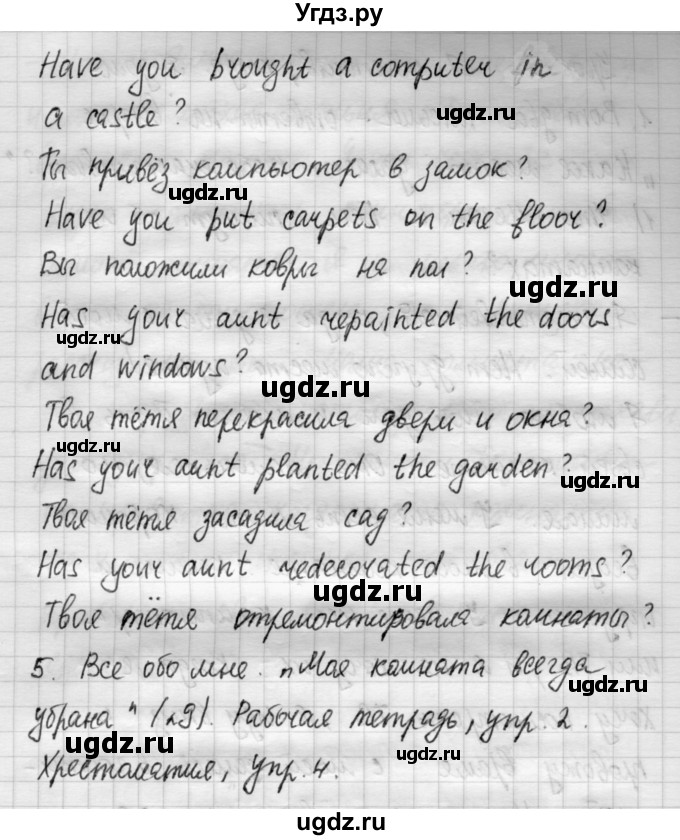 Угдз.ру
Have you brought a computer in
ugdz.ru
a castle?
Ты привёз компьютер в замок?
ugdz.ru
Have you put carpets on the floor?
Вы положили ковры на пол?
ugdz.ru
Has your aunt repainted the doors
ugdz.ru
and windows?
ugdz.ru
Твоя тётя перекрасила двери и окна?
ugdz.ru
Has your aunt planted the garden?
ugdz.ru
Твоя тётя засадила сад?
Has your aunt redecorated the rooms?
ugdz.ru
Твоя тётя отремонтировала комнаты?
5. Все обо мне. "Моя комната всегда
убрана" (№9). Рабочая тетрадь, упр. 2.
ugdz.ru
ugdz.ru
Хрестоматия, упр. 4.
ugdz.ru